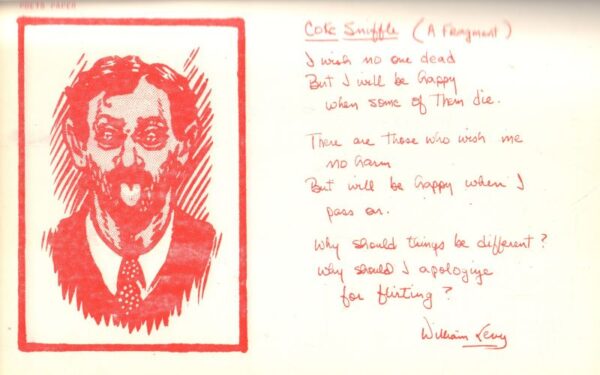 POETS PAPER
Coke Sniffle (A Fragment)
I wish no one dead
But I will be happy
when some of Them die.
There are those who wish me
no harm
But will be happy when I
pass on.
Why should things be different?
Why should I apologize
for flirting?
William Levy